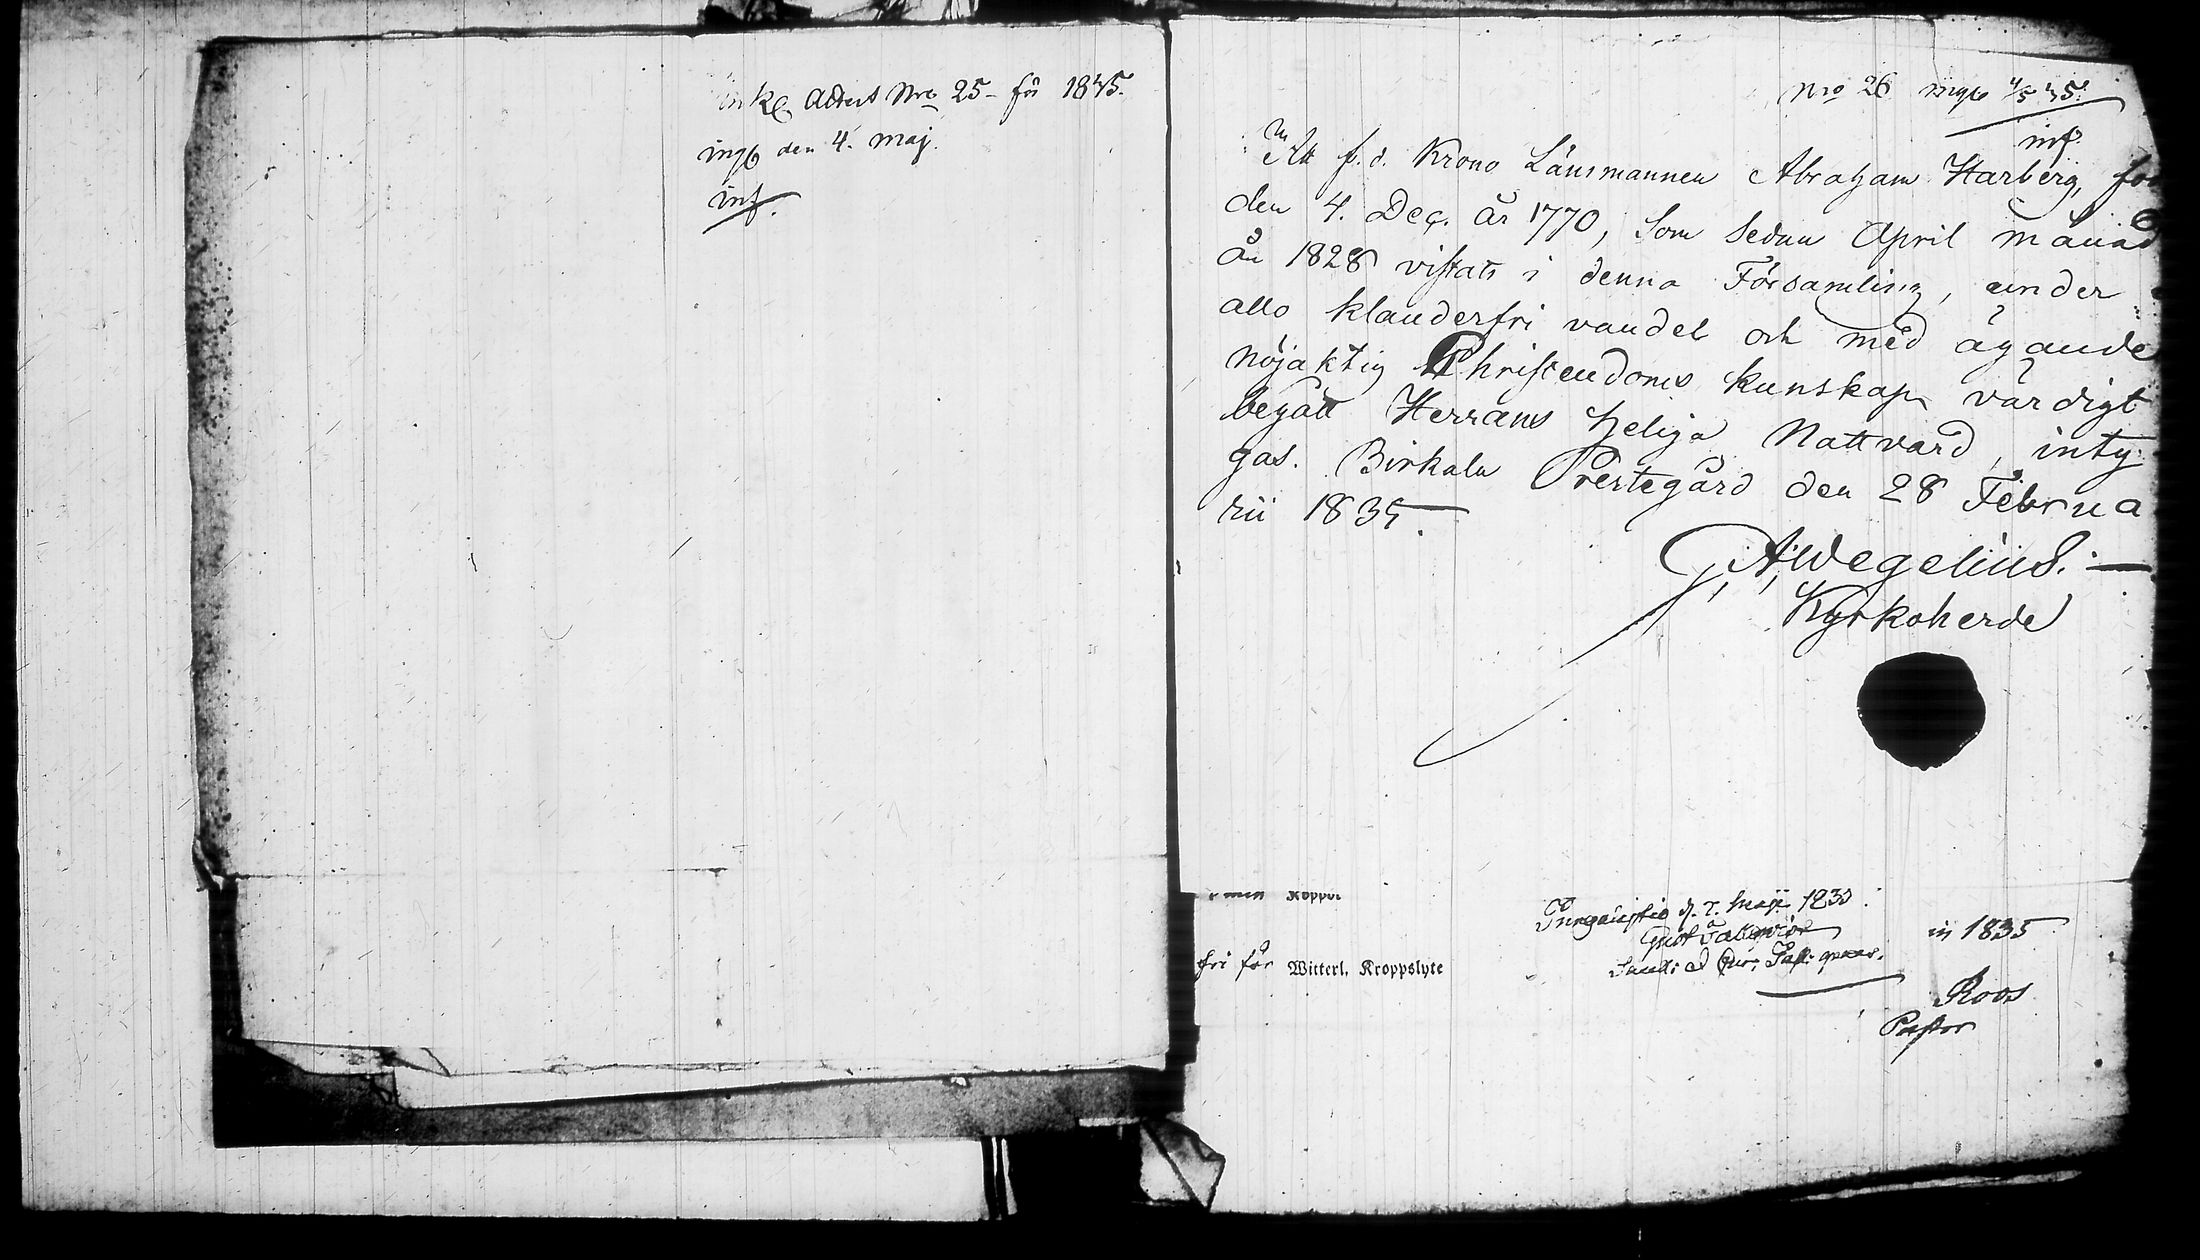 Attest Nro 25 för 1835.
ingb den 4. Maj.
inf.
Nro 26 ingb 4/5 35.
inf.
Att f.d. Krono Länsmannen Abraham Harberg, fö
den 4. Dec. år 1770, som sedan April månad
år 1828 vistats i denna Församling, under
allo klanderfri vandel och med ägande
nöjaktig Christendoms kunskap värdigt
begått Herrans heliga Nattvard, inty-
gas. Birkala Prestegård den 28 Februa
rii 1835.
G. A. Wegelius.
Kyrkoherde
Koppor
1835
fri för Witterl. Kroppslyte
in 1835
Roos
Pastor